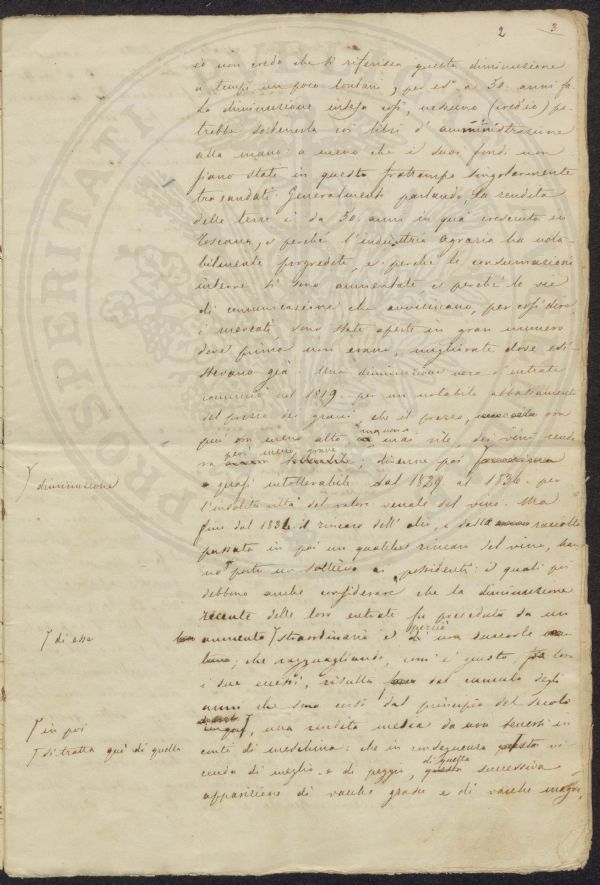 2 3
ed non credo che si riferisca questa diminuzione
a tempi un poco lontani, per es.° a 30. anni fa.
La diminuzione intesa così, nessuno (credio) po-
trebbe sostenerla coi libri d'amministrazione
alla mano: a meno che i suoi fondi non
siano stati in questo frattempo singolarmente
trasandati. Generalmente parlando la rendita
delle terre è da 30. anni in quà cresciuta in
Toscana, e perché l'industria agraria ha nota-
bilmente progredito, e perché le consumazioni
interne si sono aumentate, e perché le vie
di comunicazione che avvicinano, per così dire
i mercati sono state aperte in gran numero
dove prima non erano, migliorate dove esi-
stevano già. Una diminuzione vera d'entrate
cominciò nel 1819. per un notabile abbassamento
del prezzo dei grani che il prezzo, ora
più ora meno alto ma non vile, dei vini rende
va
però meno grave
; divenne poi
diminuzione
quasi intollerabile dal 1829 al 1836. per
l'insolita viltà del valore venale del vino. Ma
fino dal 1836. il rincaro dell'olio, e dalla raccolta
passata in poi un qualche rincaro del vino, han
no porto un sollievo ai possidenti: i quali poi
debbono anche considerare che la diminuzione
recente delle loro entrate fu preceduta da un
di essa
aumento straordinario e
perciò
; che ragguagliando, com'è giusto, loro
i due eccessi, risulta dal cumulo degli
anni che sono corsi dal principio del secolo
in poi
, una rendita media da non tenersi in
si tratta quì di quella
conto di meschina: che in conseguenza vi
cenda di meglio e di peggio,
di quella
successiva
apparizione di vacche grasse e di vacche magre,